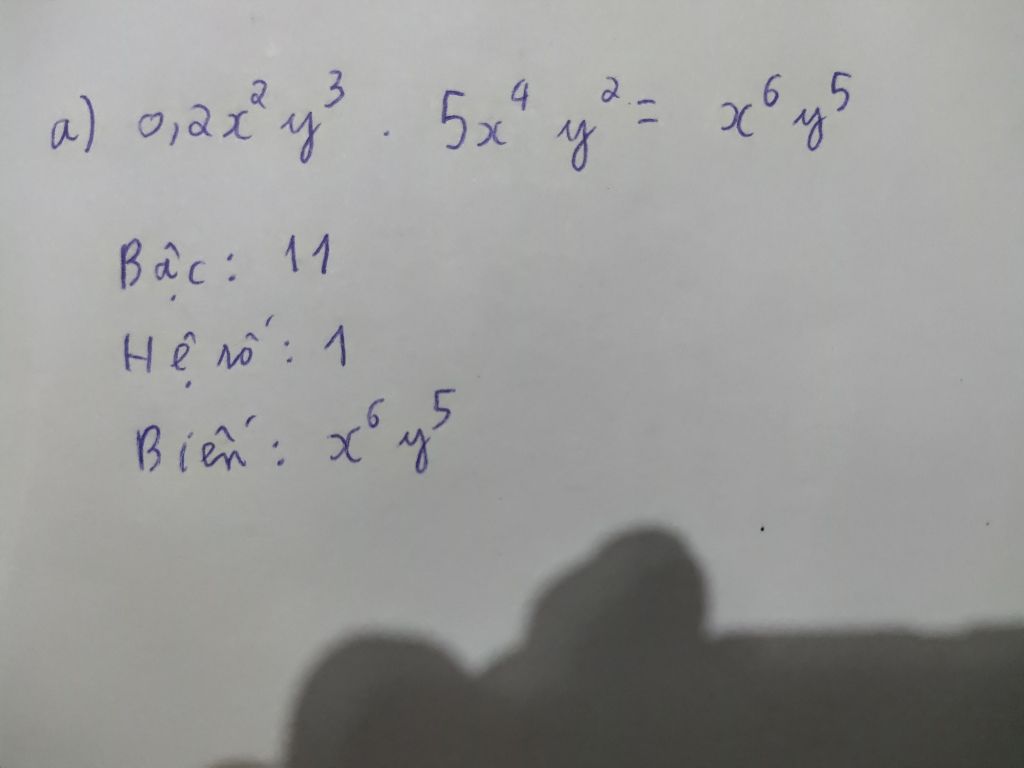 a) 0,2x²y³ . 5x⁴y² = x⁶y⁵
Bậc: 11
Hệ số: 1
Biến: x⁶y⁵